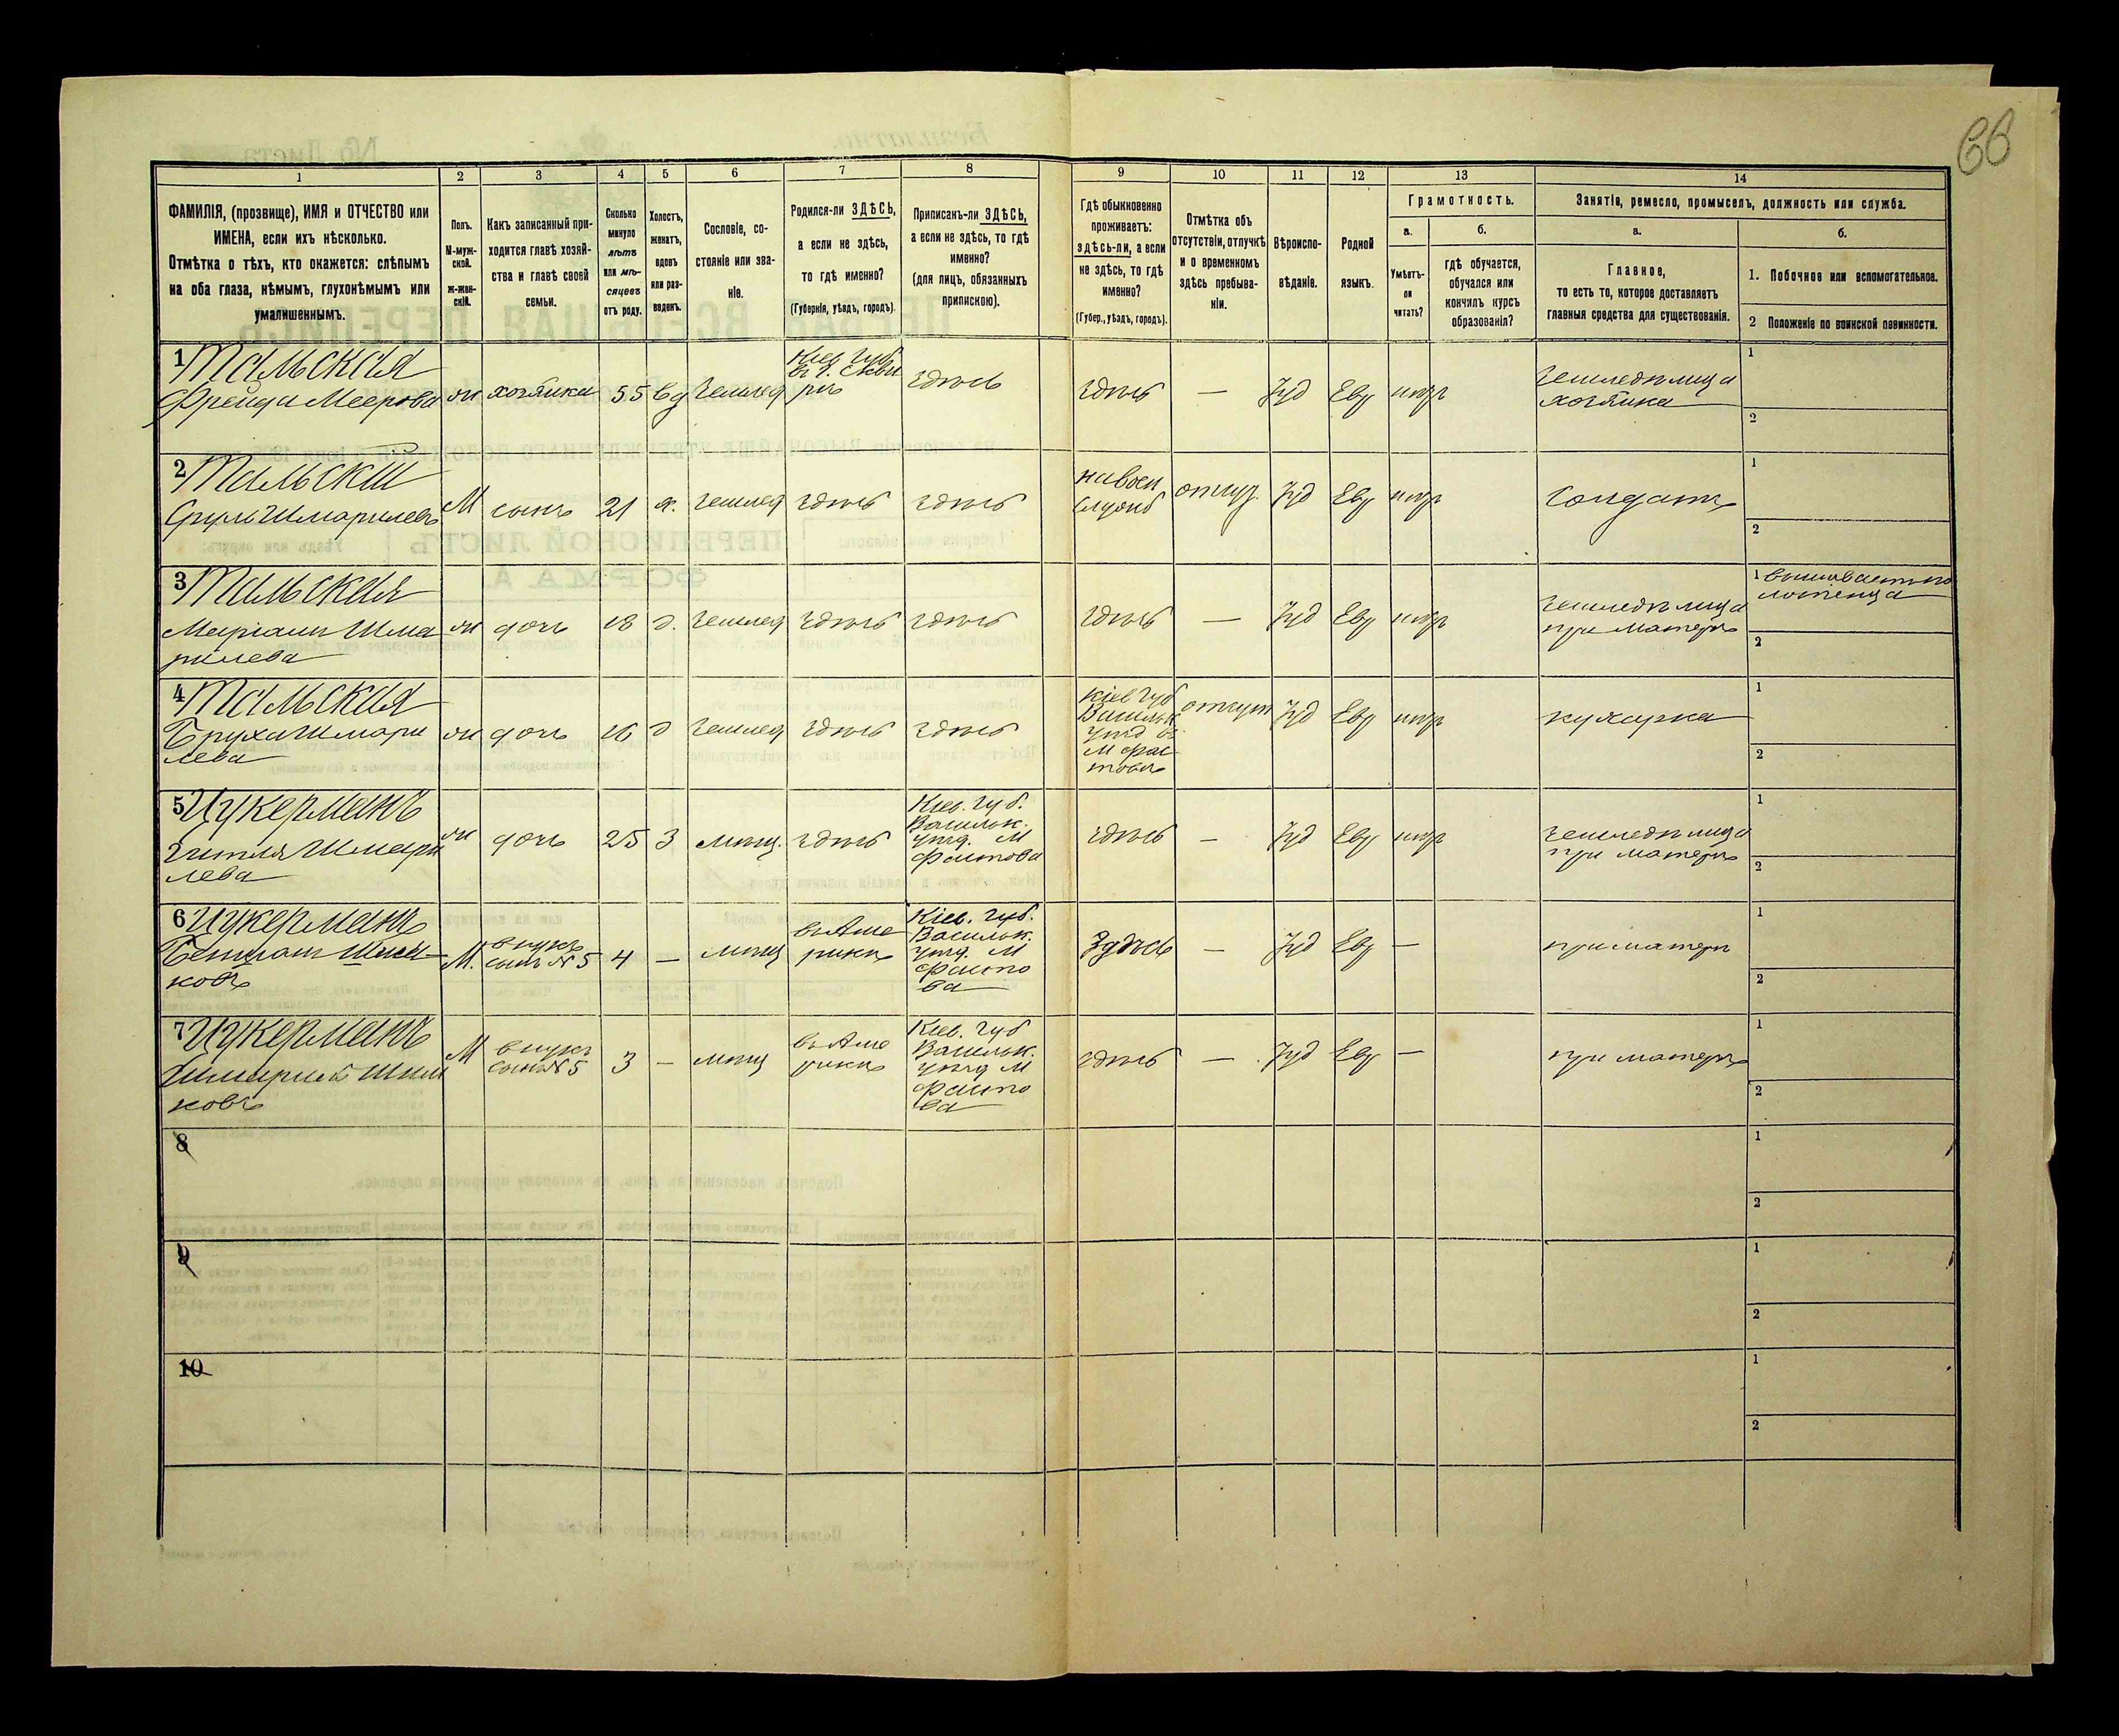 66
1 2 3 4 5 6 7 8 9 10 11 12 13 14
ФАМИЛІЯ, (прозвище), ИМЯ и ОТЧЕСТВО или
ИМЕНА, если ихъ нѣсколько.
Отмѣтка о тѣхъ, кто окажется: слѣпымъ
на оба глаза, нѣмымъ, глухонѣмымъ или
умалишеннымъ.
Полъ.
М-муж-
ской.
ж-жен-
скій.
Какъ записанный при-
ходится главѣ хозяй-
ства и главѣ своей
семьи.
Сколько
минуло
лѣтъ
или мѣ-
сяцевъ
отъ роду.
Холостъ,
женатъ,
вдовъ
или раз-
веденъ.
Сословіе, со-
стояніе или зва-
ніе.
Родился-ли ЗДѢСЬ,
а если не здѣсь,
то гдѣ именно?
(Губернія, уѣздъ, городъ).
Приписанъ-ли ЗДѢСЬ,
а если не здѣсь, то гдѣ
именно?
(для лицъ, обязанныхъ
припискою).
Гдѣ обыкновенно
проживаетъ:
здѣсь-ли, а если
не здѣсь, то гдѣ
именно?
(Губер., уѣздъ, городъ).
Отмѣтка объ
отсутствіи, отлучкѣ
и о временномъ
здѣсь пребыва-
ніи.
Вѣроиспо-
вѣданіе.
Родной
языкъ.
Грамотность.
а.
Умѣетъ-
ли
читать?
б.
гдѣ обучается,
обучался или
кончилъ курсъ
образованія?
Занятіе, ремесло, промыселъ, должность или служба.
а.
Главное,
то есть то, которое доставляетъ
главныя средства для существованія.
б.
1. Побочное или вспомогательное.
2 Положеніе по воинской повинности.
1 Тальская
Фрейда Меерова
ж
хозяйка
55
вд
землед
Кіев. губ
въ г. Сквы
рѣ
здѣсь
здѣсь
—
Іуд
Евр
нѣтъ
земледѣлица
хозяйка
1
2
2 Тальскій
Сруль Шмарилевъ
М
сынъ
21
х.
землед
здѣсь
здѣсь
на воен
службѣ
отлуч.
Іуд
Евр
нѣтъ
солдатъ
1
2
3 Тальская
Маріамъ Шма
рилева
ж
дочь
18
д.
землед
здѣсь
здѣсь
здѣсь
—
Іуд
Евр
нѣтъ
земледѣлица
при матери
1 вышиваетъ по
лотенца
2
4 Тальская
Бруха Шмари
лева
ж
дочь
16
д
землед
здѣсь
здѣсь
Кіев губ
Васильк
уѣзд въ
М Фас
товѣ
отлуч
Іуд
Евр
нѣтъ
кухарка
1
2
5 Цукерманъ
Гитля Шмари
лева
ж
дочь
25
З
мѣщ.
здѣсь
Кіев. губ.
Васильк.
уѣзд. М
Фастова
здѣсь
—
Іуд
Евр
нѣтъ
земледѣлица
при матери
1
2
6 Цукерманъ
ковъ
М.
внукъ
сынъ №5
4
—
мѣщ
въ Аме
рикѣ
Кіев. губ.
Васильк.
уѣзд. М
Фасто
ва
Здѣсь
—
Іуд
Евр
—
при матери
1
2
7 Цукерманъ
ковъ
М
внукъ
сынъ №5
3
—
мѣщ
въ Аме
рикѣ
Кіев. губ
Васильк.
уѣзд М
Фасто
ва
здѣсь
—
Іуд
Евр
—
при матери
1
2
8
1
2
9
1
2
10
1
2